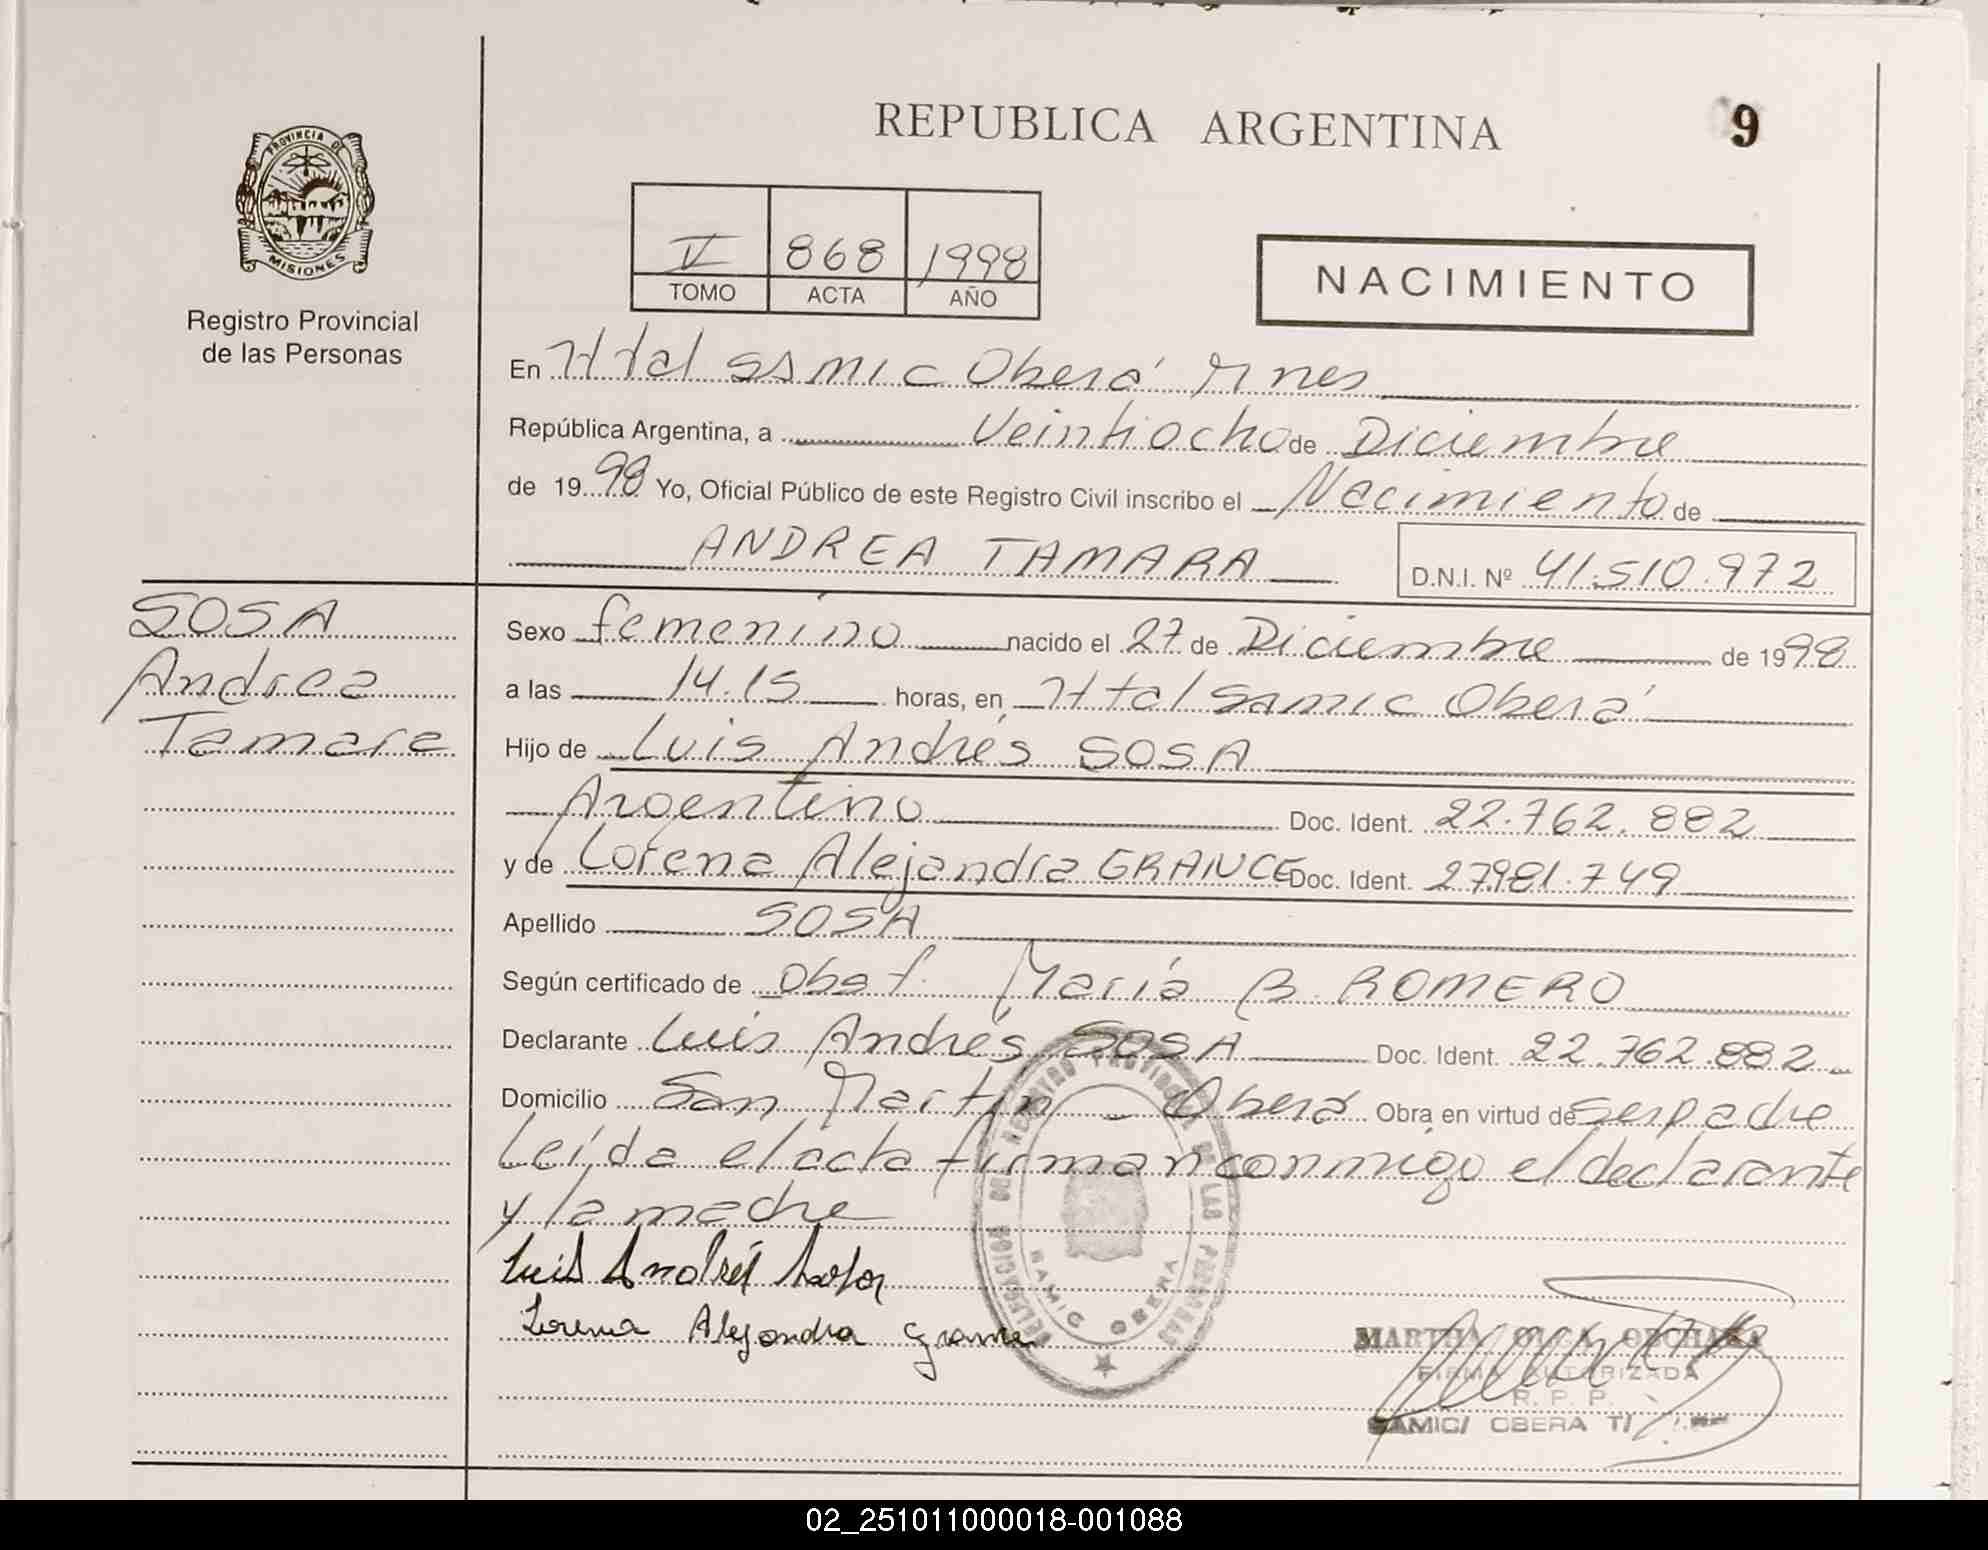 REPUBLICA ARGENTINA
9
PROVINCIA DE
MISIONES
Registro Provincial
de las Personas
V 868 1998
TOMO ACTA AÑO
NACIMIENTO
En Htal SAMIC Oberá Mnes
República Argentina, a Veintiocho de Diciembre
de 1998 Yo, Oficial Público de este Registro Civil inscribo el Nacimiento de
ANDREA TAMARA D.N.I. Nº 41.510.972
SOSA
Andrea
Tamara
Sexo femenino nacido el 27 de Diciembre de 1998
a las 14.15 horas, en Htal Samic Oberá
Hijo de Luis Andrés SOSA
Argentino Doc. Ident. 22.762.882
y de Lorena Alejandra GRANCE Doc. Ident. 27981.749
Apellido SOSA
Según certificado de Obst. María B. ROMERO
Declarante Luis Andrés SOSA Doc. Ident. 22.762.882
Domicilio San Martín - Oberá Obra en virtud de ser padre
Leída el acta firman conmigo el declarante
y la madre
Luis Andrés
Lorena Alejandra Grance
DELEGACION DEL REGISTRO PROVINCIAL DE LAS PERSONAS
SAMIC OBERA
MARTHA OLGA
FIRMA AUTORIZADA
R. P. P.
SAMIC/ OBERA
02_251011000018-001088